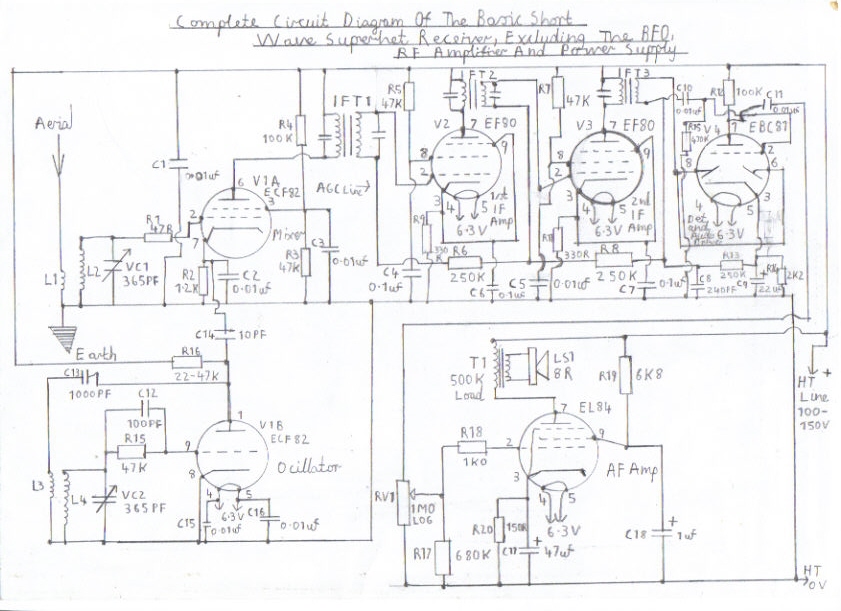 Complete Circuit Diagram Of The Basic Short
Wave Superhet Receiver, Excluding The BFO,
RF Amplifier And Power Supply
Aerial
C1
0.01uf
R4
100K
IFT1
R5
47K
IFT2
V2
7
EF80
9
8
2
3
4
5
6.3V
1st
IF
Amp
R7
47K
IFT3
V3
7
EF80
9
8
2
3
4
5
6.3V
2nd
IF
Amp
C10
0.01uf
R12
100K
C11
0.01uf
470K
V4
7
EBC81
2
8
6
1
3
4
5
6.3V
Det
and
Audio
V1A
ECF82
6
3
2
7
Mixer
AGC Line→
R1
47R
L1
L2
VC1
365PF
R2
1.2K
C2
0.01uf
R3
47K
C3
0.01uf
C4
0.1uf
R9
330
R
R6
250K
C6
0.1uf
C5
0.01uf
330R
R8
250K
C7
0.1uf
C8
240PF
R13
250K
C9
22uf
R14
2K2
Earth
C14
10PF
R16
22-47K
C13
1000PF
C12
100PF
R15
47K
V1B
ECF82
1
9
8
4
5
6.3V
Ocillator
L3
L4
VC2
365PF
C15
0.01uf
C16
0.01uf
T1
500K
Load
LS1
8R
R19
6K8
EL84
7
9
2
3
4
5
6.3V
AF Amp
R18
1K0
RV1
1M0
LOG
R17
680K
R20
150R
C17
+
47uf
C18
+
1uf
HT +
Line
100-
150V
HT
0V